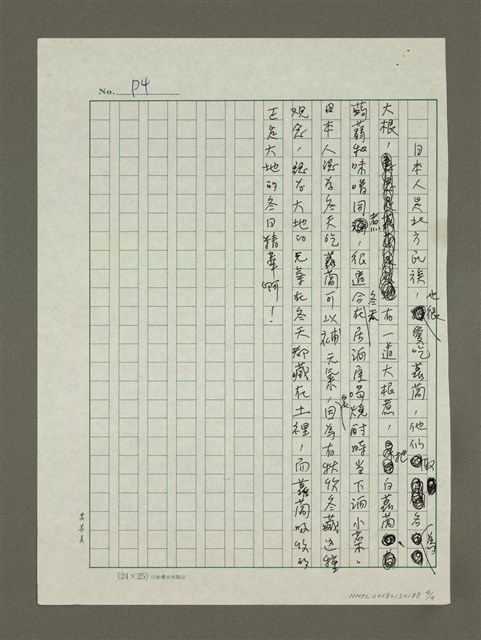 No. P4
日本人是北方民族，也很愛吃蘿蔔，他們取名為
大根，有一道大根煮，把白蘿蔔、
蒟蒻和味噌同煮，很適合冬天在居酒屋喝燒酎時當下酒小菜。
日本人認為冬天吃蘿蔔可以補元氣，因為有秋收冬藏這種
觀念，認為大地的元氣在冬天都藏在土裡，而蘿蔔吸收的
正是大地的冬日精華啊！
(24×25)
NMTL20180130188 4/4